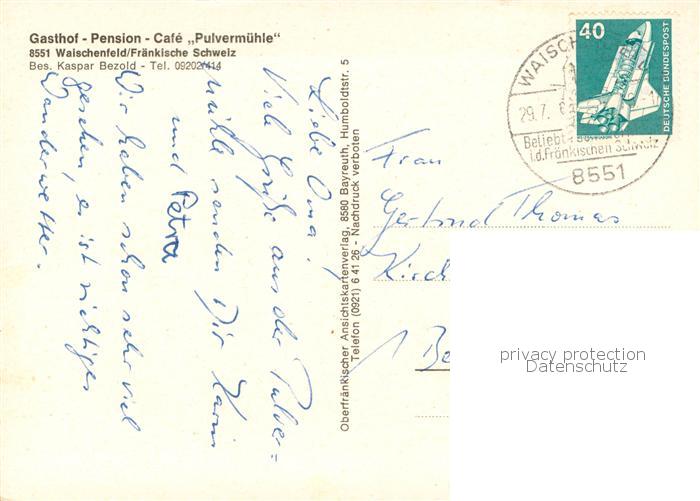 Gasthof - Pension - Café „Pulvermühle"
8551 Waischenfeld/Fränkische Schweiz
Bes. Kaspar Bezold - Tel. 09202/414
Liebe Oma!
Viele Grüße aus der Pulver=
mühle senden Dir Karin
und Petra
Wir haben schon sehr viel
gesehen, es ist richtiges
Wanderwetter.
Oberfränkischer Ansichtskartenverlag, 8580 Bayreuth, Humboldtstr. 5
Telefon (0921) 6 41 26 - Nachdruck verboten
WAISCH
29.7.
Beliebt
i.d. Fränkischen Schweiz
8551
40
DEUTSCHE BUNDESPOST
Frau
Gertrud Thomas
Kirch
1 Be
privacy protection
Datenschutz